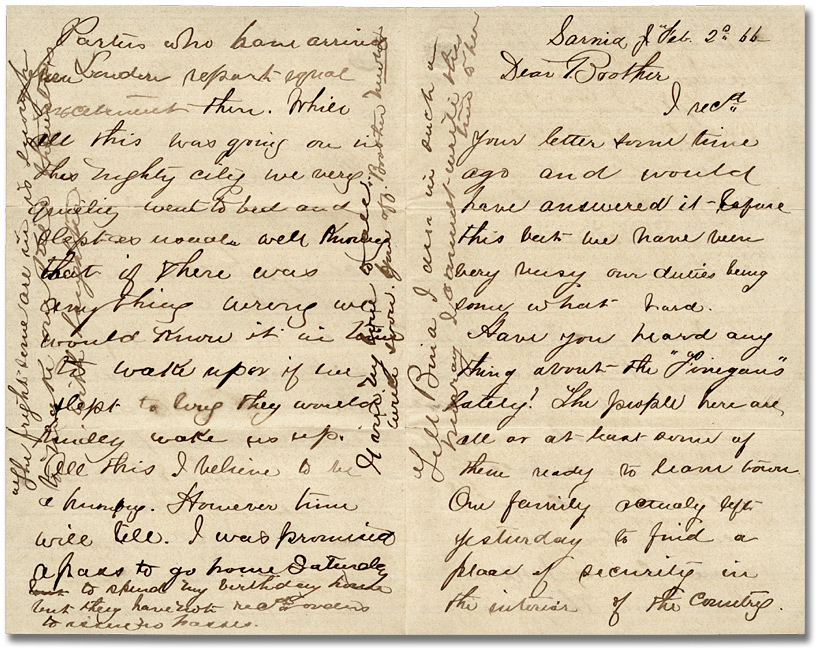 Sarnia Feb. 2d 66
Dear Brother
I recd
Your letter some time
ago and would
have answered it before
this but we have been
very busy our duties being
some what hard.
Have you heard any
thing about the "Finegans"
lately! The people here are,
all or at least some of
them ready to leave town.
One family actualy left
yesterday to find a
place of security in
the interior of the Country.
Parties who have arrived
from London report equal
excitement there. While
all this was going on in
this mighty city we very
quietly went to bed and
slept as usual well knowing
that if there was
anything wrong we
would know it in time
to wake up or if we
slept to long they would
kindly wake us up.
All this I believe to be
a humbug. However time
will tell. I was promised
a pass to go home Saturday
to spend my birthday home
but they have not recd orders
to issue no passes.
Tell Bina I am in such a
hurry I cannot write this
time
The fright some are in is enough
to make
Have my love to all.
write soon. Your aff. Brother